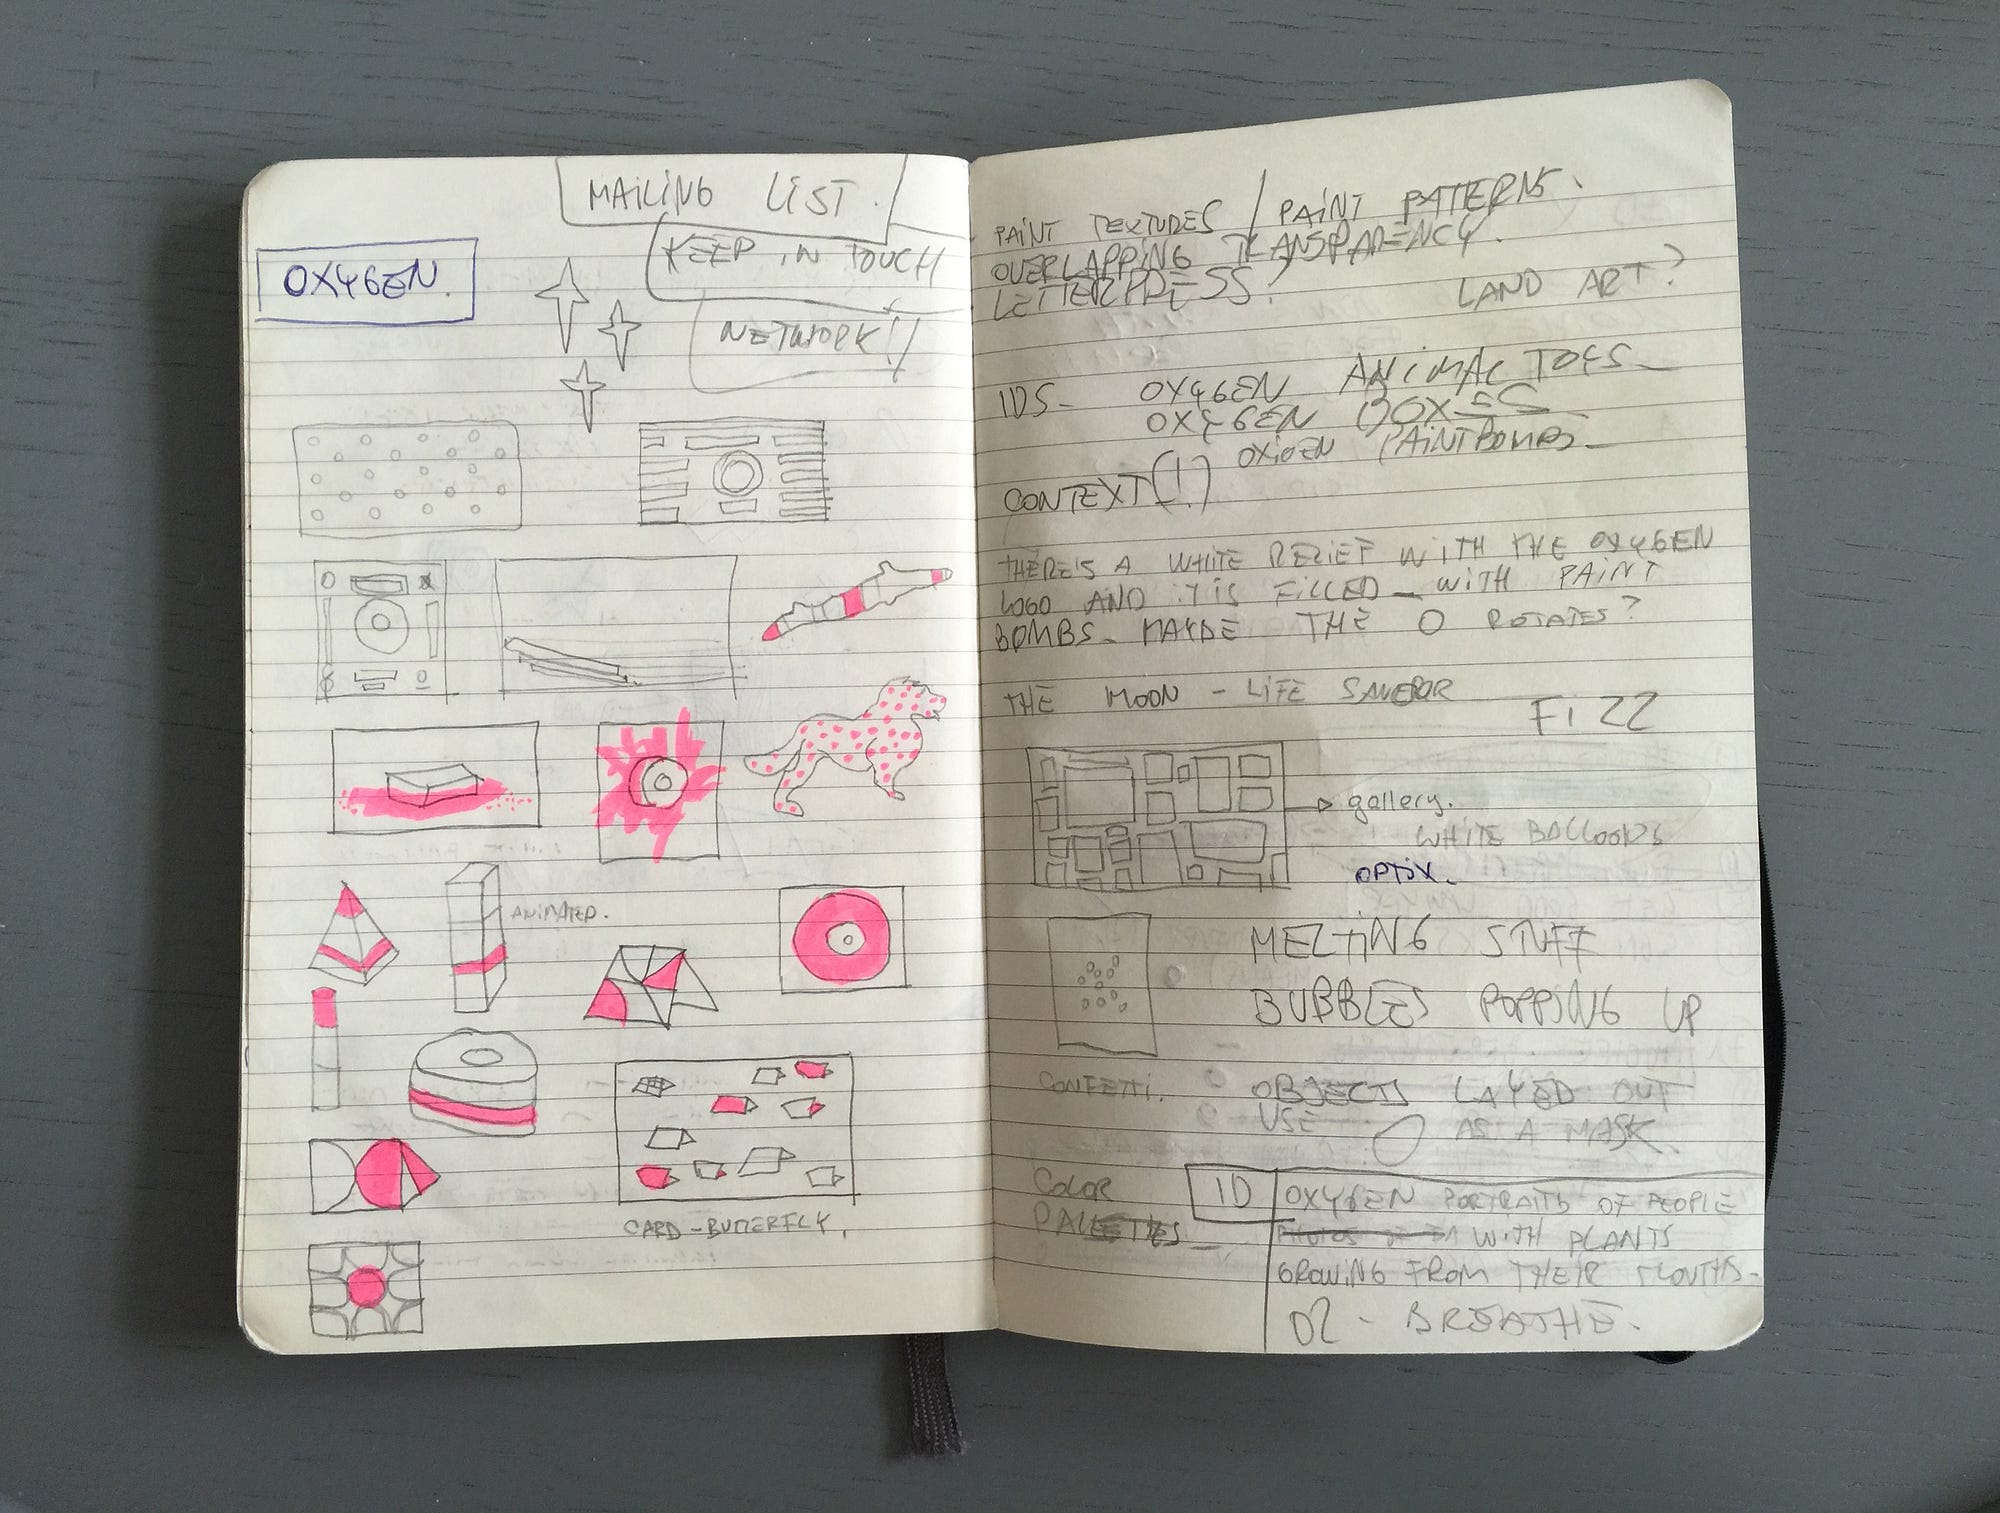 MAILING LIST.
KEEP IN TOUCH
NETWORK!!
OXYGEN.
ANIMATED.
CARD-BUTTERFLY.
PAINT TEXTURES / PAINT PATTERNS.
OVERLAPPING TRANSPARENCY.
LETTERPRESS!
LAND ART?
IDS- OXYGEN ANIMAL TOYS-
OXYGEN BOXES
OXIGEN PAINTBOMBS-
CONTEXT(!)
THERE'S A WHITE RELIEF WITH THE OXYGEN
LOGO AND IT IS FILLED_WITH PAINT
BOMBS- MAYBE THE O ROTATES?
THE MOON - LIFE
FIZZ
gallery.
WHITE BALLOONS
OPTIX-
MELTING STUFF
BUBBLES POPPING UP
CONFETTI.
OBJECTS LAYED OUT
USE O AS A MASK.
COLOR
PALETTES
ID
OXYGEN PORTRAITS OF PEOPLE
WITH PLANTS
GROWING FROM THEIR MOUTHS-
O2 - BREATHE.